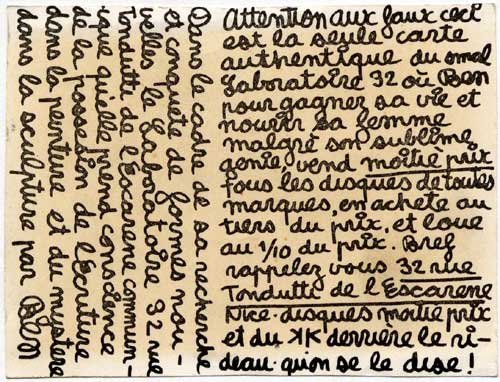 Attention aux faux ceci
est la seule carte
authentique du smal
Laboratoire 32 où Ben
pour gagner sa vie et
nourir sa femme
malgré son sublime
genie vend moitie prix
tous les disques de toutes
marques, en achete au
tiers du prix, et loue
au 1/10 du prix. Bref
rappelez vous 32 rue
Tondutti de l'Escarene
Nice. disques moitie prix
et du KK derrière le ri-
deau. qu'on se le dise!
Dans le cadre de sa recherche
et conquete de formes nou-
velles le Laboratoire 32 rue
Tondutti de l'Escarene commun-
ique qu'elle prend conscience
de la possesion de l'Ecriture
dans la peinture et du mystere
dans la sculpture par Ben